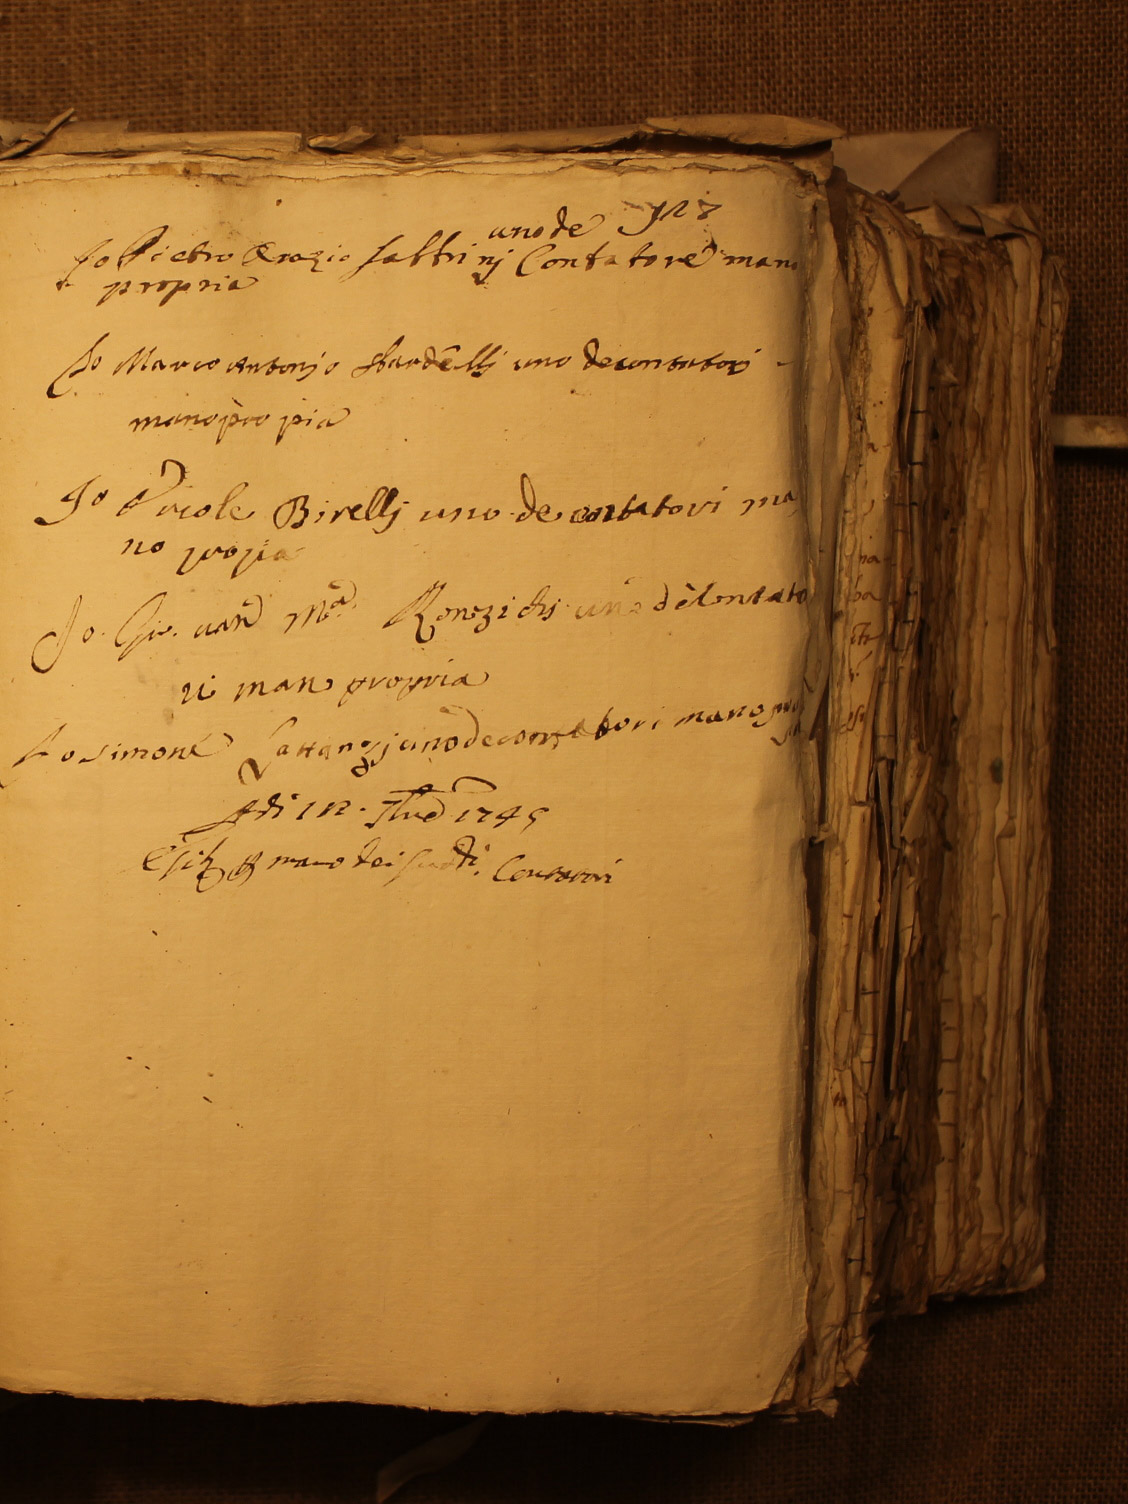 928
uno de
Io Pietro Orazio Sabbrinj Contatore mano
propria
Io Marco Antonjo Sbardellj uno de contatori
mano propia
Io Ercole Birellj uno de contatori ma
no propia
Io Gio. Ma. Ronzichj uno de Contato
ri man propria
Io Simone Lattanzj uno de contatori mano pro
pia
Adi 12. 1745
mano dei Contatori